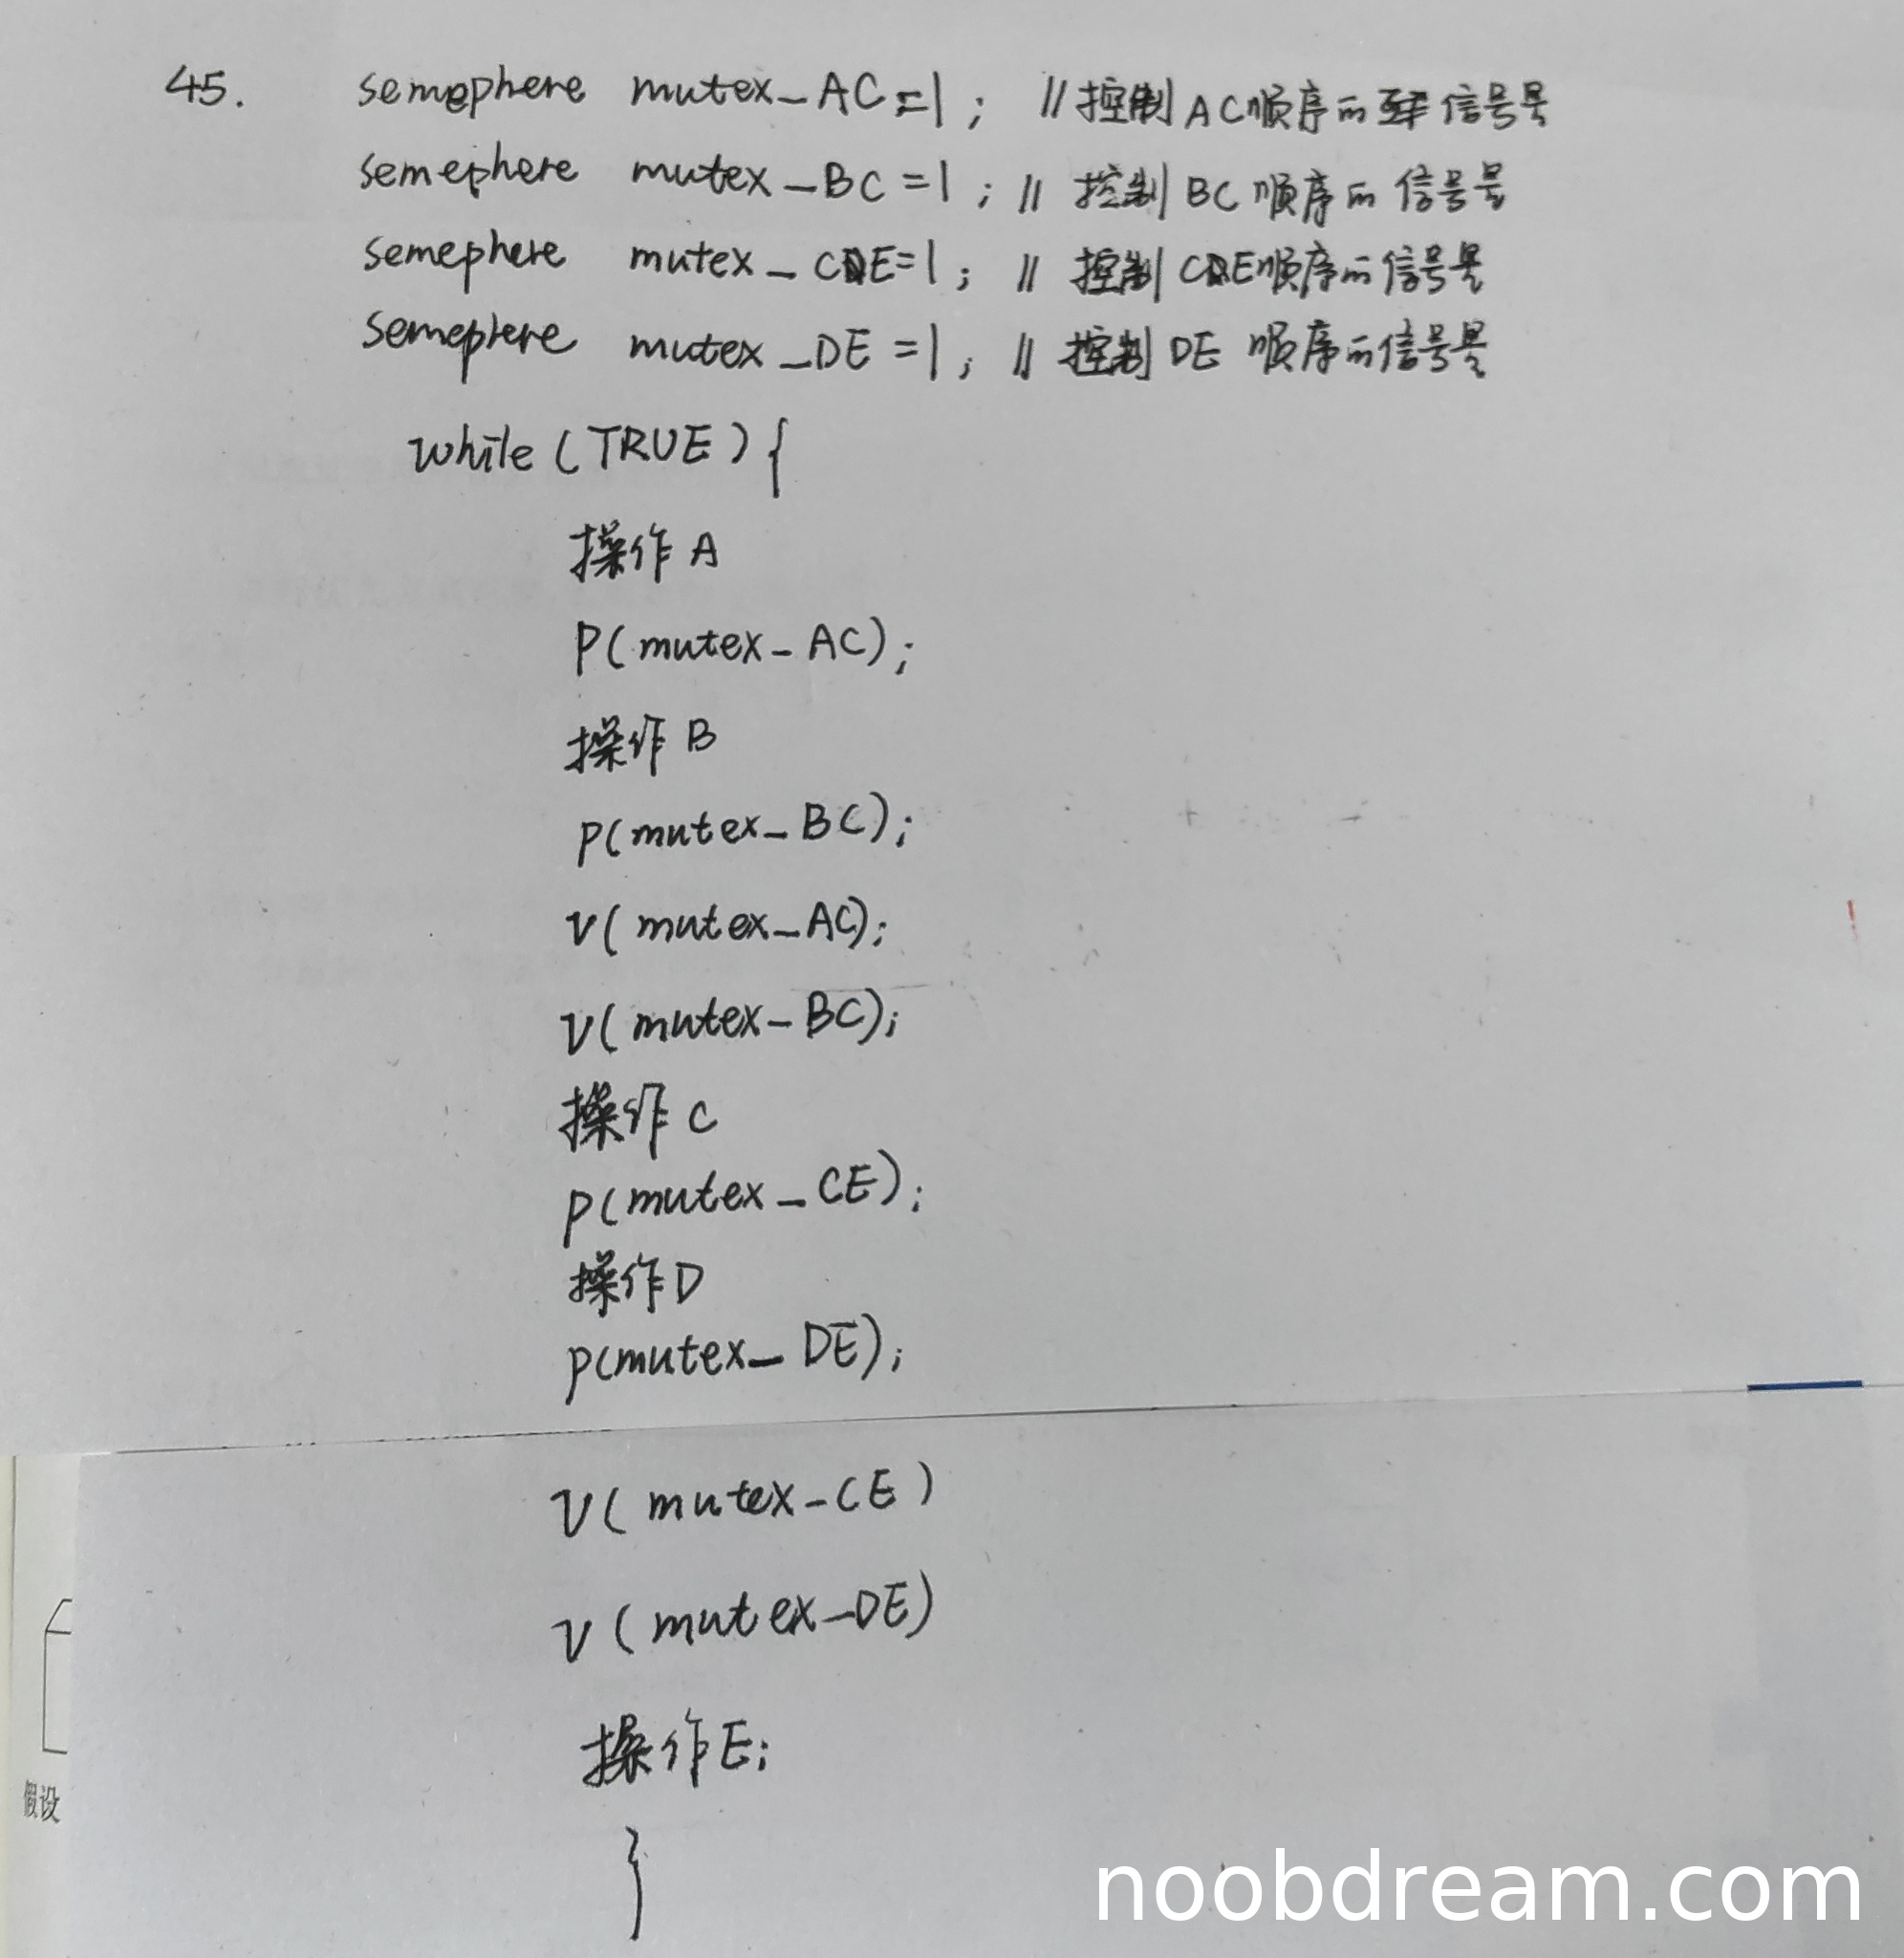 45. semaphere mutex_AC=1; //控制AC顺序的信号量
semephere mutex_BC=1; // 控制BC顺序的信号量
semephere mutex_CE=1; // 控制CE顺序的信号量
semephere mutex_DE=1; // 控制DE顺序的信号量
while(TRUE){
操作A
P(mutex_AC);
操作B
P(mutex_BC);
V(mutex_AC);
V(mutex_BC);
操作C
P(mutex_CE);
操作D
P(mutex_DE);
V(mutex_CE)
V(mutex_DE)
操作E;
}
假设
noobdream.com